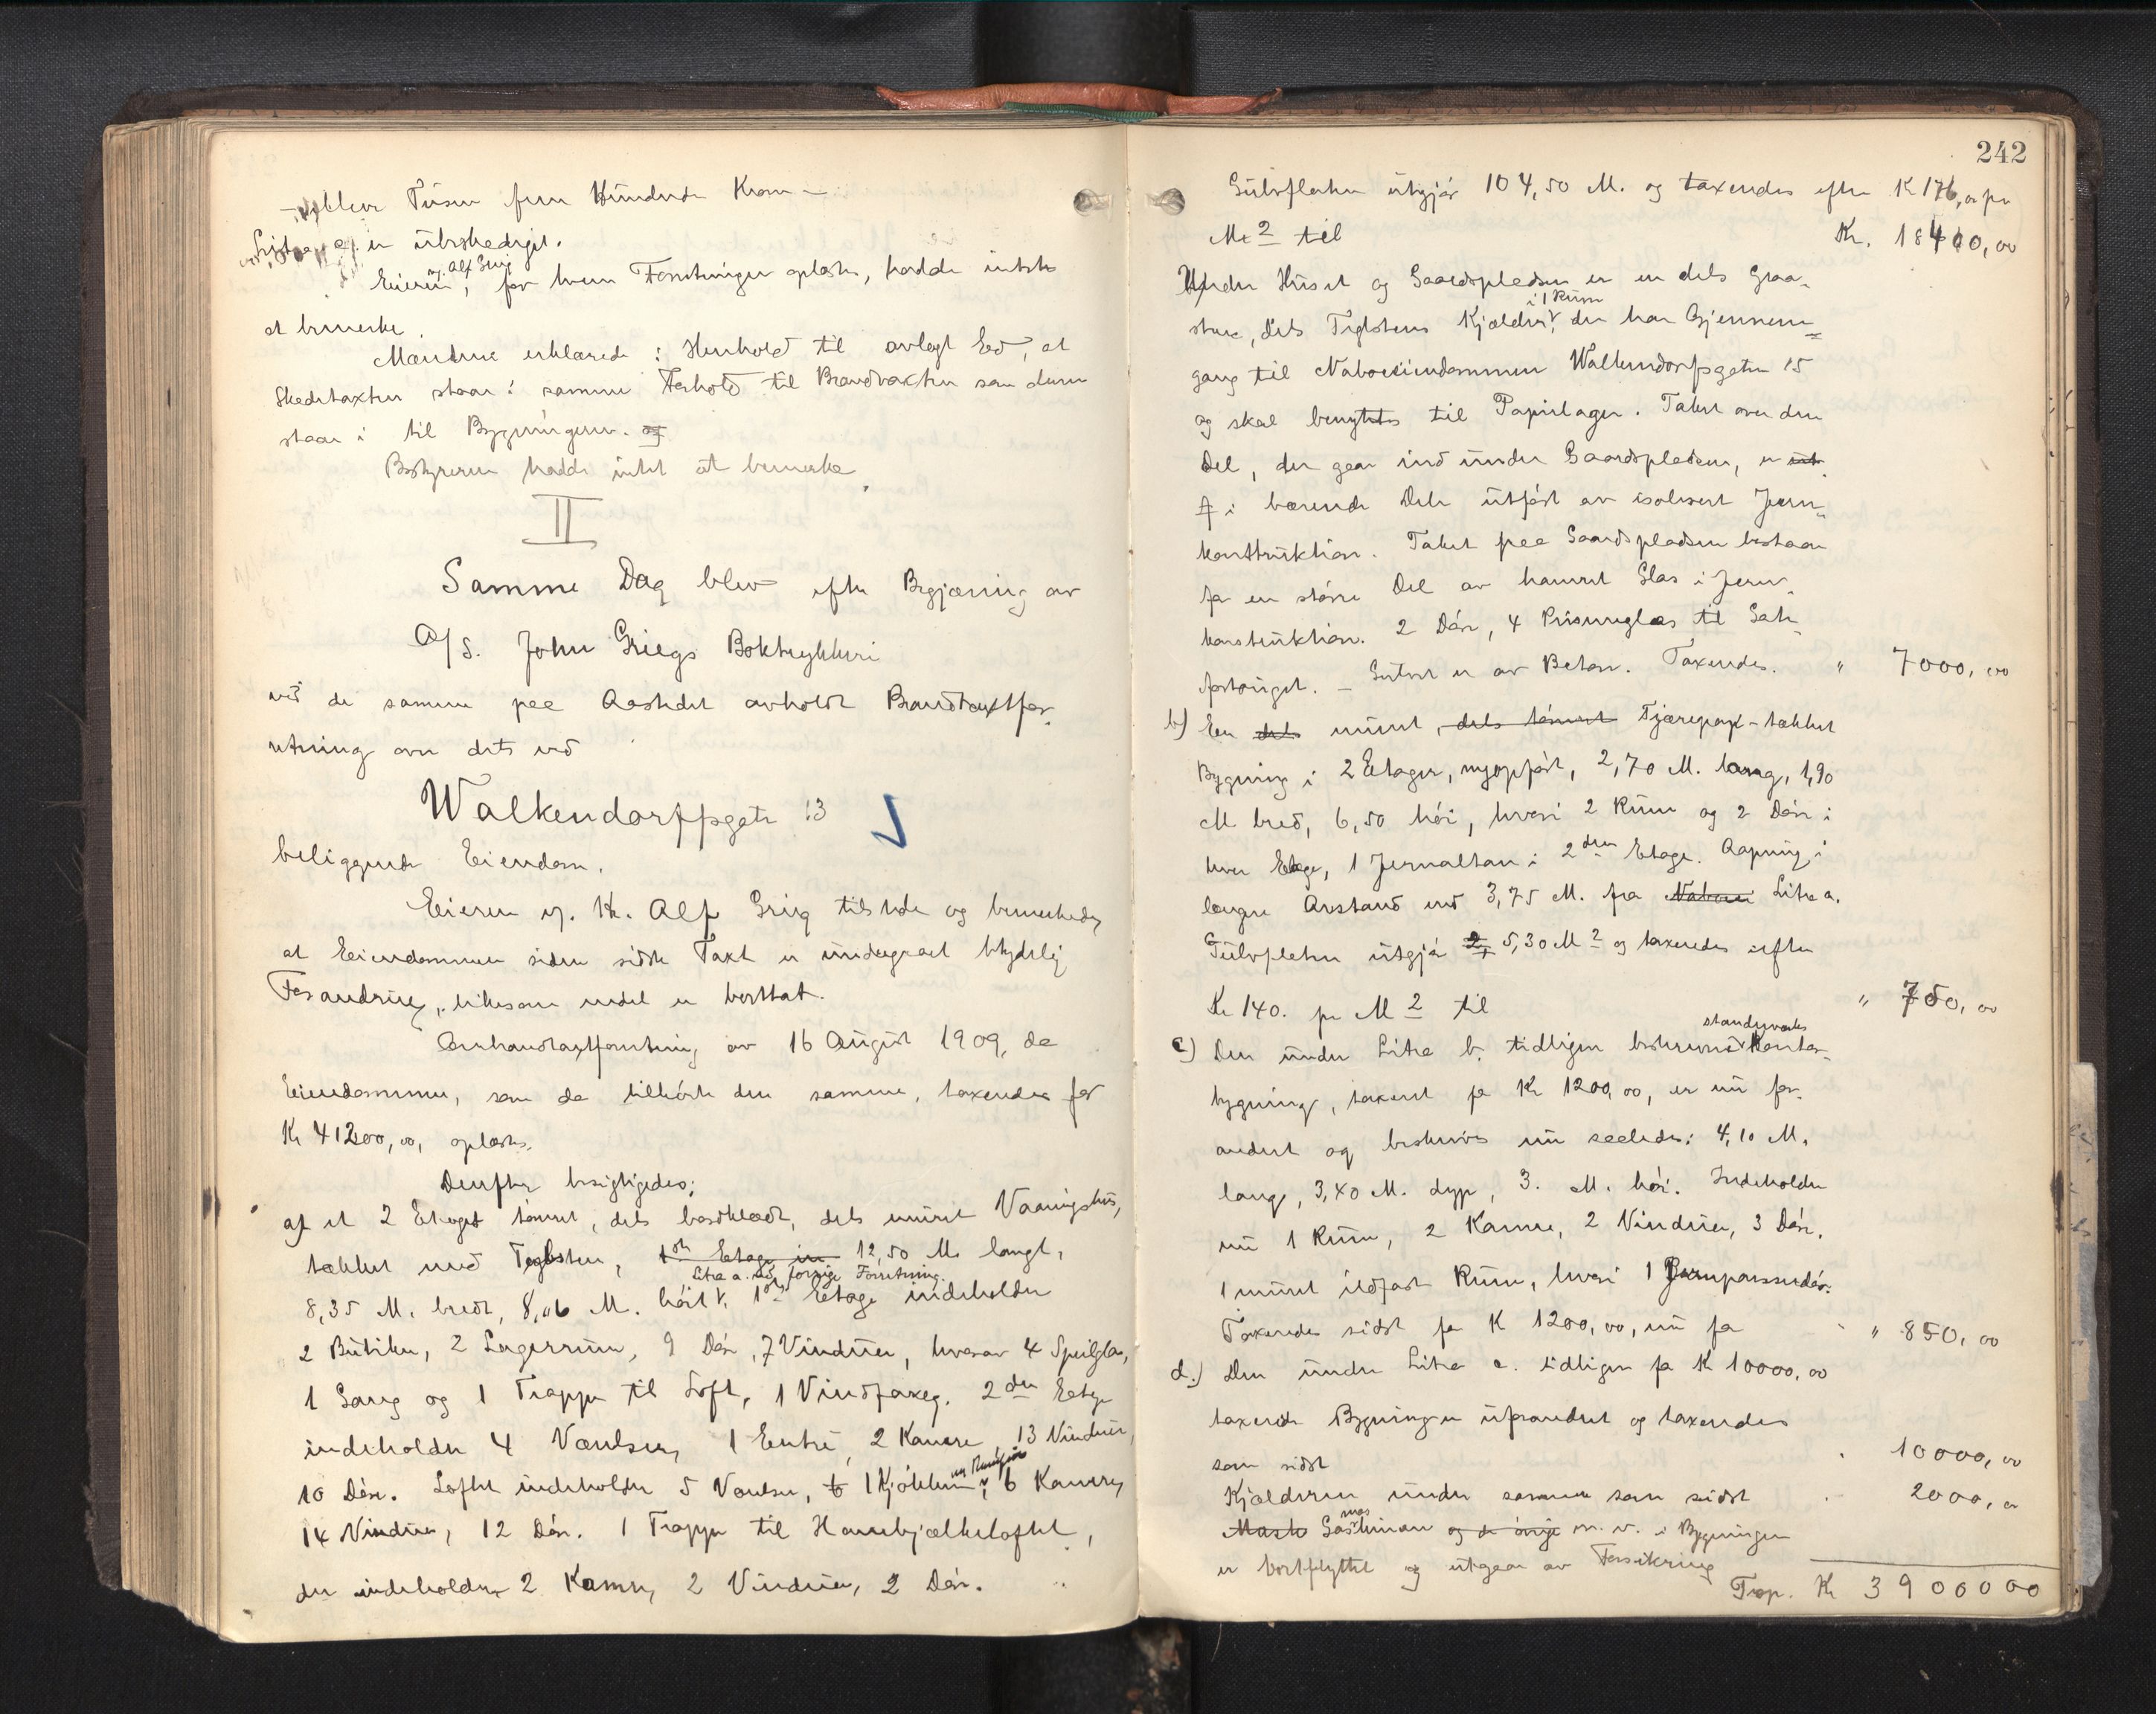 tolleve Tusen fem Hundrede Kron —
Litra a. er ubeskediget.
Eieren, ved Alf Grieg, for hvem Forretningen oplæstes, hadde intet
at bemerke.
Mændene erklærede i Henhold til avlagt Eed, at
Skedetaxten staar i samme Forhold til Brandtaxten som denne
staar i til Bygningen. og
Bestyreren hadde intet at bemerke.
II
Samme Dag blev efter Begjæring av
A/S. John Griegs Boktrykkeri
ved de samme paa Aastedet avholdt Brandtaxtfor-
retning over dets ved
Walkendorffsgate 13
beliggende Eiendom.
Eieren v. Hr. Alf Grieg tilstede og bemerkede,
at Eiendommen siden sidste Taxt er undergaaet betydelig
Forandring, likesom endel er borttat.
Ombrandtaxtforretning av 16 August 1909, da
Eiendommen, som da tilhørte den samme, taxeredes for
Kr 41200,00, oplæstes.
Derefter besigtigedes:
a) et 2 Etages tømret, dels bordklædt, dels muret Vaaningshus,
tækket med Teglsten, 1ste Etage in 12,50 M. langt,
8,35 M. bredt, 8,06 M. høit, Litra a. ved forrige Forretning. 1ste Etage indeholder
2 Butiker, 2 Lagerrum, 9 Døre, 7 Vinduer, hvorav 4 Speilglas,
1 Gang og 1 Trappe til Loft, 1 Vindfang. 2den Etage
indeholder 4 Værelser, 1 Entré, 2 Kamre, 13 Vinduer,
10 Døre. Loftet indeholder 5 Værelser, 1 Kjøkken, 6 Kamre,
14 Vinduer, 12 Døre. 1 Trappe til Hanebjælkeloftet,
der indeholder 2 Kamre, 2 Vinduer, 2 Døre.
242
Gulvflaten utgjør 104,50 M. og taxeredes efter K 176,00 pr
M2 til Kr. 18400,00
Under Huset og Gaardspladsen er en dels Graa-
stens, dels Teglstens Kjælder i 1 Rum, der har Gjennem-
gang til Naboeiendommen Walkendorfsgaten 15
og skal benyttes til Papirlager. Taket over den
Del, der gaar ind under Gaardspladsen, er ut-
f i bærende Dele utført av isolerert Jern-
konstruktion. Taket paa Gaardspladsen bestaar
for en større Del av hamret Glas i Jern-
konstruktion. 2 Døre, 4 Prismeglas til Gate-
fortouget. — Gulvet er av Beton. Taxeredes. " 7000,00
b) En dels muret, dels tømret Tjærepap-tækket
Bygning i 2 Etager, nyopført, 2,70 M. lang, 1,90
M bred, 6,50 høi, hvori 2 Rum og 2 Døre i
hver Etage, 1 Jernaltan i 2den Etage. Aapning i
længre Avstand end 3,75 M. fra Naboei Litra a.
Gulvflaten utgjør 2, 5,30 M2 og taxeredes efter
Kr 140. pr M2 til " 750,00
c) Den under Litra b. tidligere beskrevne standverks Kontor-
bygning, taxeret for Kr 1200,00, er nu for-
andret og beskrives nu saaledes: 4,10 M.
lang, 3,40 M. dyp, 3. M. høi. Indeholder
nu 1 Rum, 2 Kamre, 2 Vinduer, 3 Døre.
1 muret ildfast Rum, hvori 1 Jernpanserdør.
Taxeredes sidst for K 1200,00, nu for " 850,00
d.) Den under Litra c. tidligere for K 10000,00
taxerede Bygning er uforandret og taxeredes
som sidst 10000,00
Kjælderen under samme som sidst 2000,00
Mask Gasmaskinen og de øvrige m. v. i Bygningen
er bortflyttet og utgaar av Forsikring
Trsp. Kr 39000 00